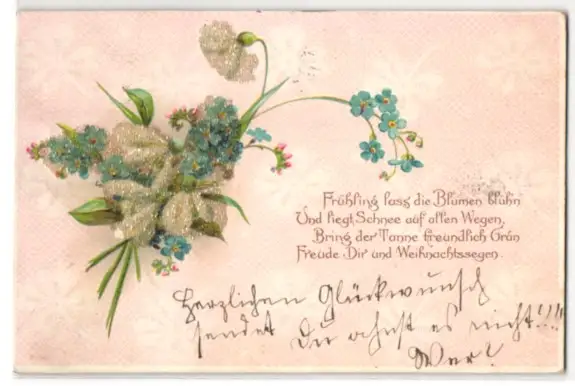 Frühling lass die Blumen blühn
Und liegt Schnee auf allen Wegen,
Bring der Tanne freundlich Grün
Freude Dir und Weihnachtssegen.
Herzlichen Glückwunsch
sendet Du ahnst es nicht!!!
Wer?